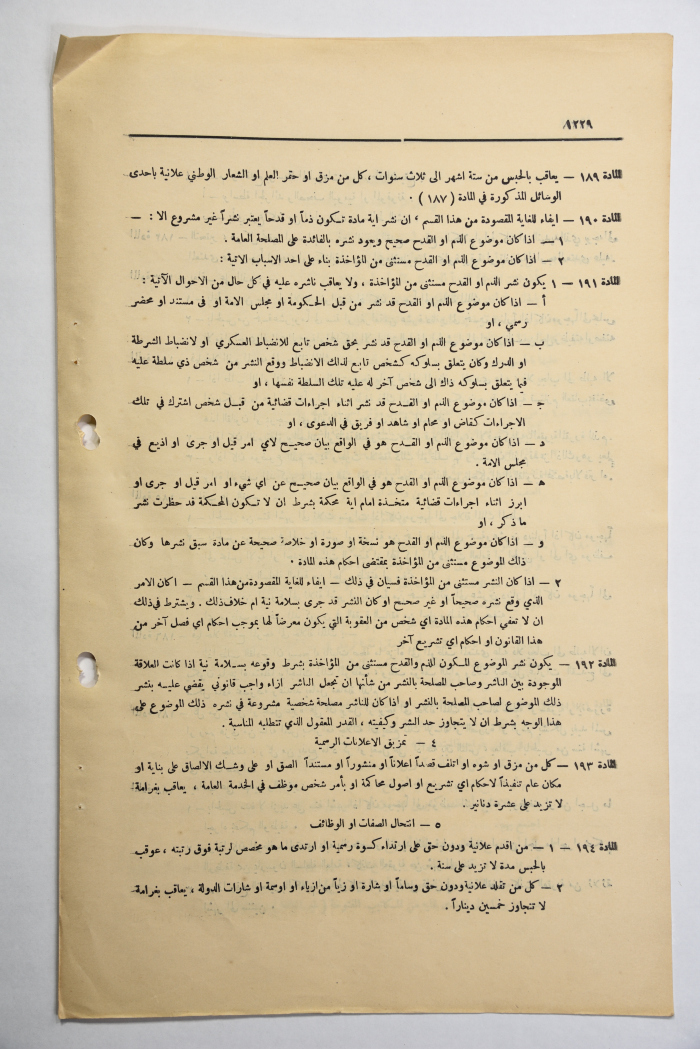 ١٢٢٩
المادة ١٨٩ — يعاقب بالحبس من ستة اشهر الى ثلاث سنوات ، كل من مزق او حقر العلم او الشعار الوطني علانية باحدى
الوسائل المذكورة في المادة ( ١٨٧ ) ٠
المادة ١٩٠ — ايفاء للغاية المقصودة من هذا القسم ، ان نشر اية مادة تكون ذماً او قدحاً يعتبر نشراً غير مشروع الا : —
١ — اذا كان موضوع الذم او القدح صحيح ويعود نشره بالفائدة على المصلحة العامة .
٢ — اذا كان موضوع الذم او القدح مستثنى من المؤاخذة بناء على احد الاسباب الاتية :
المادة ١٩١ — ١ يكون نشر الذم او القدح مستثنى من المؤاخذة ، ولا يعاقب ناشره عليه في كل حال من الاحوال الآتية :
أ — اذا كان موضوع الذم او القدح قد نشر من قبل الحكومة او مجلس الامة او في مستند او محضر
رسمي ، او
ب — اذا كان موضوع الذم او القدح قد نشر بحق شخص تابع للانضباط العسكري او لانضباط الشرطة
او الدرك وكان يتعلق بسلوكه كشخص تابع لذلك الانضباط ووقع النشر من شخص ذي سلطة عليه
فيما يتعلق بسلوكه ذاك الى شخص آخر له عليه تلك السلطة نفسها ، او
جـ — اذا كان موضوع الذم او القدح قد نشر اثناء اجراءات قضائية من قبل شخص اشترك في تلك
الاجراءات كقاض او محام او شاهد او فريق في الدعوى ، او
د — اذا كان موضوع الذم او القدح هو في الواقع بيان صحيح لاي امر قيل او جرى او اذيع في
مجلس الامة .
هـ — اذا كان موضوع الذم او القدح هو في الواقع بيان صحيح عن اي شيء او امر قيل او جرى او
ابرز اثناء اجراءات قضائية متخذة امام اية محكمة بشرط ان لا تكون المحكمة قد حظرت نشر
ما ذكر ، او
و — اذا كان موضوع الذم او القدح هو نسخة او صورة او خلاصة صحيحة عن مادة سبق نشرها وكان
ذلك الموضوع مستثنى من المؤاخذة بمقتضى احكام هذه المادة ٠
٢ — اذا كان النشر مستثنى من المؤاخذة فسيان في ذلك — ايفاء للغاية المقصودة من هذا القسم — اكان الامر
الذي وقع نشره صحيحاً او غير صحيح او كان النشر قد جرى بسلامة نية ام خلاف ذلك . ويشترط في ذلك
ان لا تعفي احكام هذه المادة اي شخص من العقوبة التي يكون معرضاً لها بموجب احكام اي فصل آخر من
هذا القانون او احكام اي تشريع آخر
المادة ١٩٢ — يكون نشر الموضوع المكون للذم والقدح مستثنى من المؤاخذة بشرط وقوعه بسلامة نية اذا كانت العلاقة
الموجودة بين الناشر وصاحب المصلحة بالنشر من شأنها ان تجعل الناشر ازاء واجب قانوني يقضي عليه بنشر
ذلك الموضوع لصاحب المصلحة بالنشر او اذا كان للناشر مصلحة شخصية مشروعة في نشره ذلك الموضوع على
هذا الوجه بشرط ان لا يتجاوز حد النشر وكيفيته ، القدر المعقول الذي تتطلبه المناسبة .
٤ — تمزيق الاعلانات الرسمية
المادة ١٩٣ — كل من مزق او شوه او اتلف قصداً اعلاناً او منشوراً او مستنداً الصق او على وشك الالصاق على بناية او
مكان عام تنفيذاً لاحكام اي تشريع او اصول محاكمة او بأمر شخص موظف في الخدمة العامة ، يعاقب بغرامة
لا تزيد على عشرة دنانير .
٥ — انتحال الصفات او الوظائف
المادة ١٩٤ — ١ — من اقدم علانية ودون حق على ارتداء كسوة رسمية او ارتدى ما هو مخصص لرتبة فوق رتبته ، عوقب
بالحبس مدة لا تزيد على سنة .
٢ — كل من تقلد علانية ودون حق وساماً او شارة او زياً من ازياء او اوسمة او شارات الدولة ، يعاقب بغرامة
لا تتجاوز خمسين ديناراً .